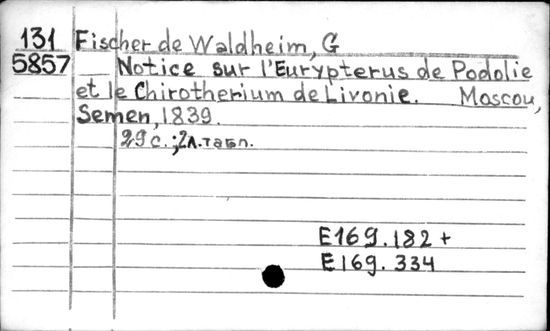 131 Fischer de Waldheim, G
5857 Notice sur l'Eurypterus de Podolie
et le Chirotherium de Livonie. Moscou,
Semen, 1839.
29 с.; 2л. табл.
E169.182 +
E169.334